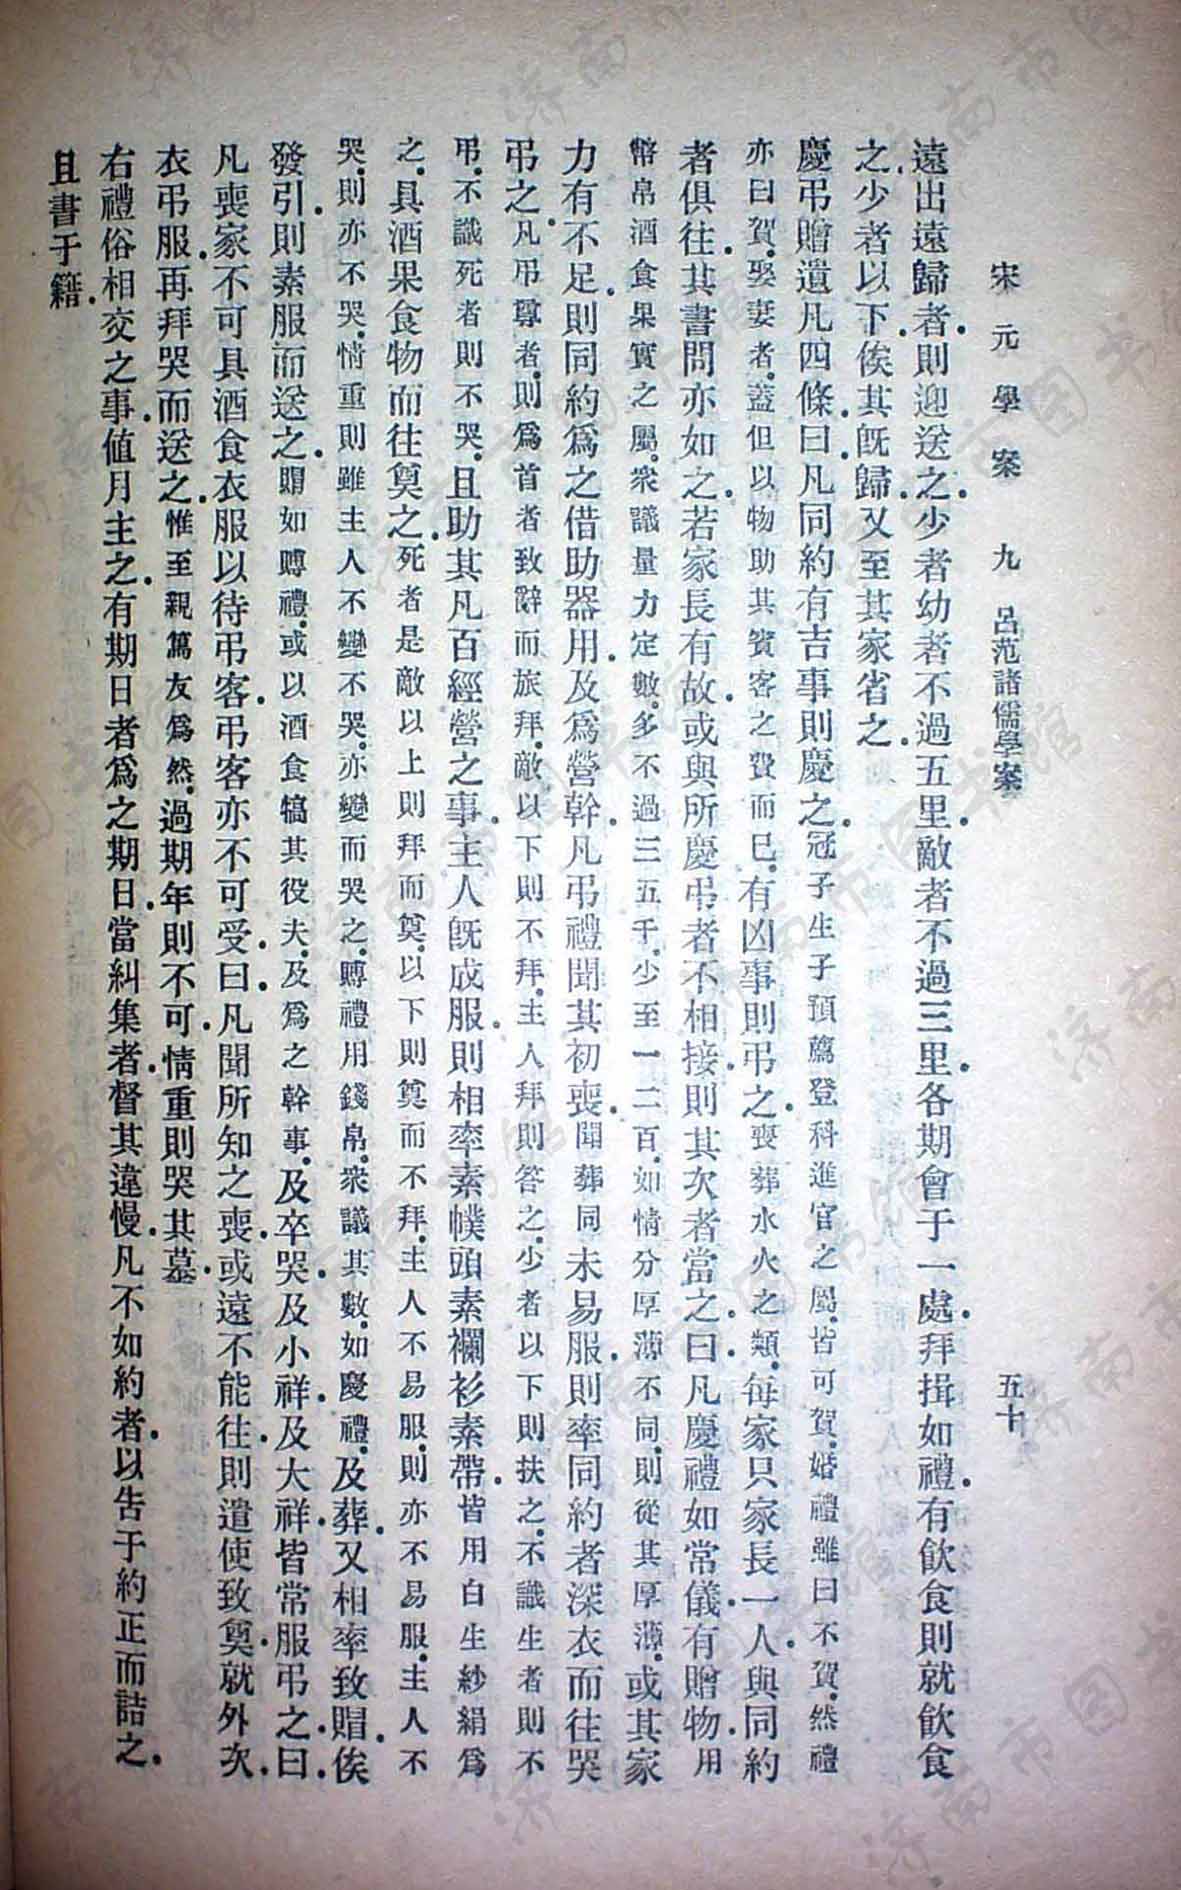 宋元學案 九 呂范諸儒學案 五十
遠出遠歸者．則迎送之．少者幼者不過五里．敵者不過三里．各期會于一處．拜揖如禮．有飲食則就飲食
之．少者以下．俟其旣歸．又至其家省之．
慶弔贈遺凡四條．曰．凡同約有吉事則慶之．冠子生子預薦登科進官之屬．皆可賀．婚禮雖曰不賀．然禮
亦曰賀．娶妻者．蓋但以物助其賓客之費而已．有凶事則弔之．喪葬水火之類．每家只家長一人．與同約
者俱往．其書問亦如之．若家長有故．或與所慶弔者不相接．則其次者當之．曰．凡慶禮如常儀．有贈物．用
幣帛酒食果實之屬．衆議量力定數．多不過三五千．少至一二百．如情分厚薄不同．則從其厚薄．或其家
力有不足．則同約爲之借助器用．及爲營幹．凡弔禮聞其初喪．聞葬同 未易服．則率同約者深衣而往哭
弔之．凡弔尊者．則爲首者致辭而旅拜．敵以下則不拜．主人拜則答之．少者以下則扶之．不識生者則不
弔．不識死者則不哭．且助其凡百經營之事．主人旣成服．則相率素幞頭素襴衫素帶．皆用白生紗絹爲
之．具酒果食物而往奠之．死者是敵以上則拜而奠．以下則奠而不拜．主人不易服．則亦不易服．主人不
哭．則亦不哭．情重則雖主人不變不哭．亦變而哭之．賻禮用錢帛．衆議其數．如慶禮．及葬．又相率致賵．俟
發引．則素服而送之．賵如賻禮．或以酒食犒其役夫．及爲之幹事．及卒哭．及小祥．及大祥．皆常服弔之．曰．
凡喪家不可具酒食衣服以待弔客．弔客亦不可受．曰．凡聞所知之喪．或遠不能往．則遣使致奠．就外次．
衣弔服．再拜哭而送之．惟至親篤友爲然．過期年則不可．情重則哭其墓．
右禮俗相交之事．値月主之．有期日者爲之期日．當糾集者．督其違慢．凡不如約者．以告于約正而詰之．
且書于籍．